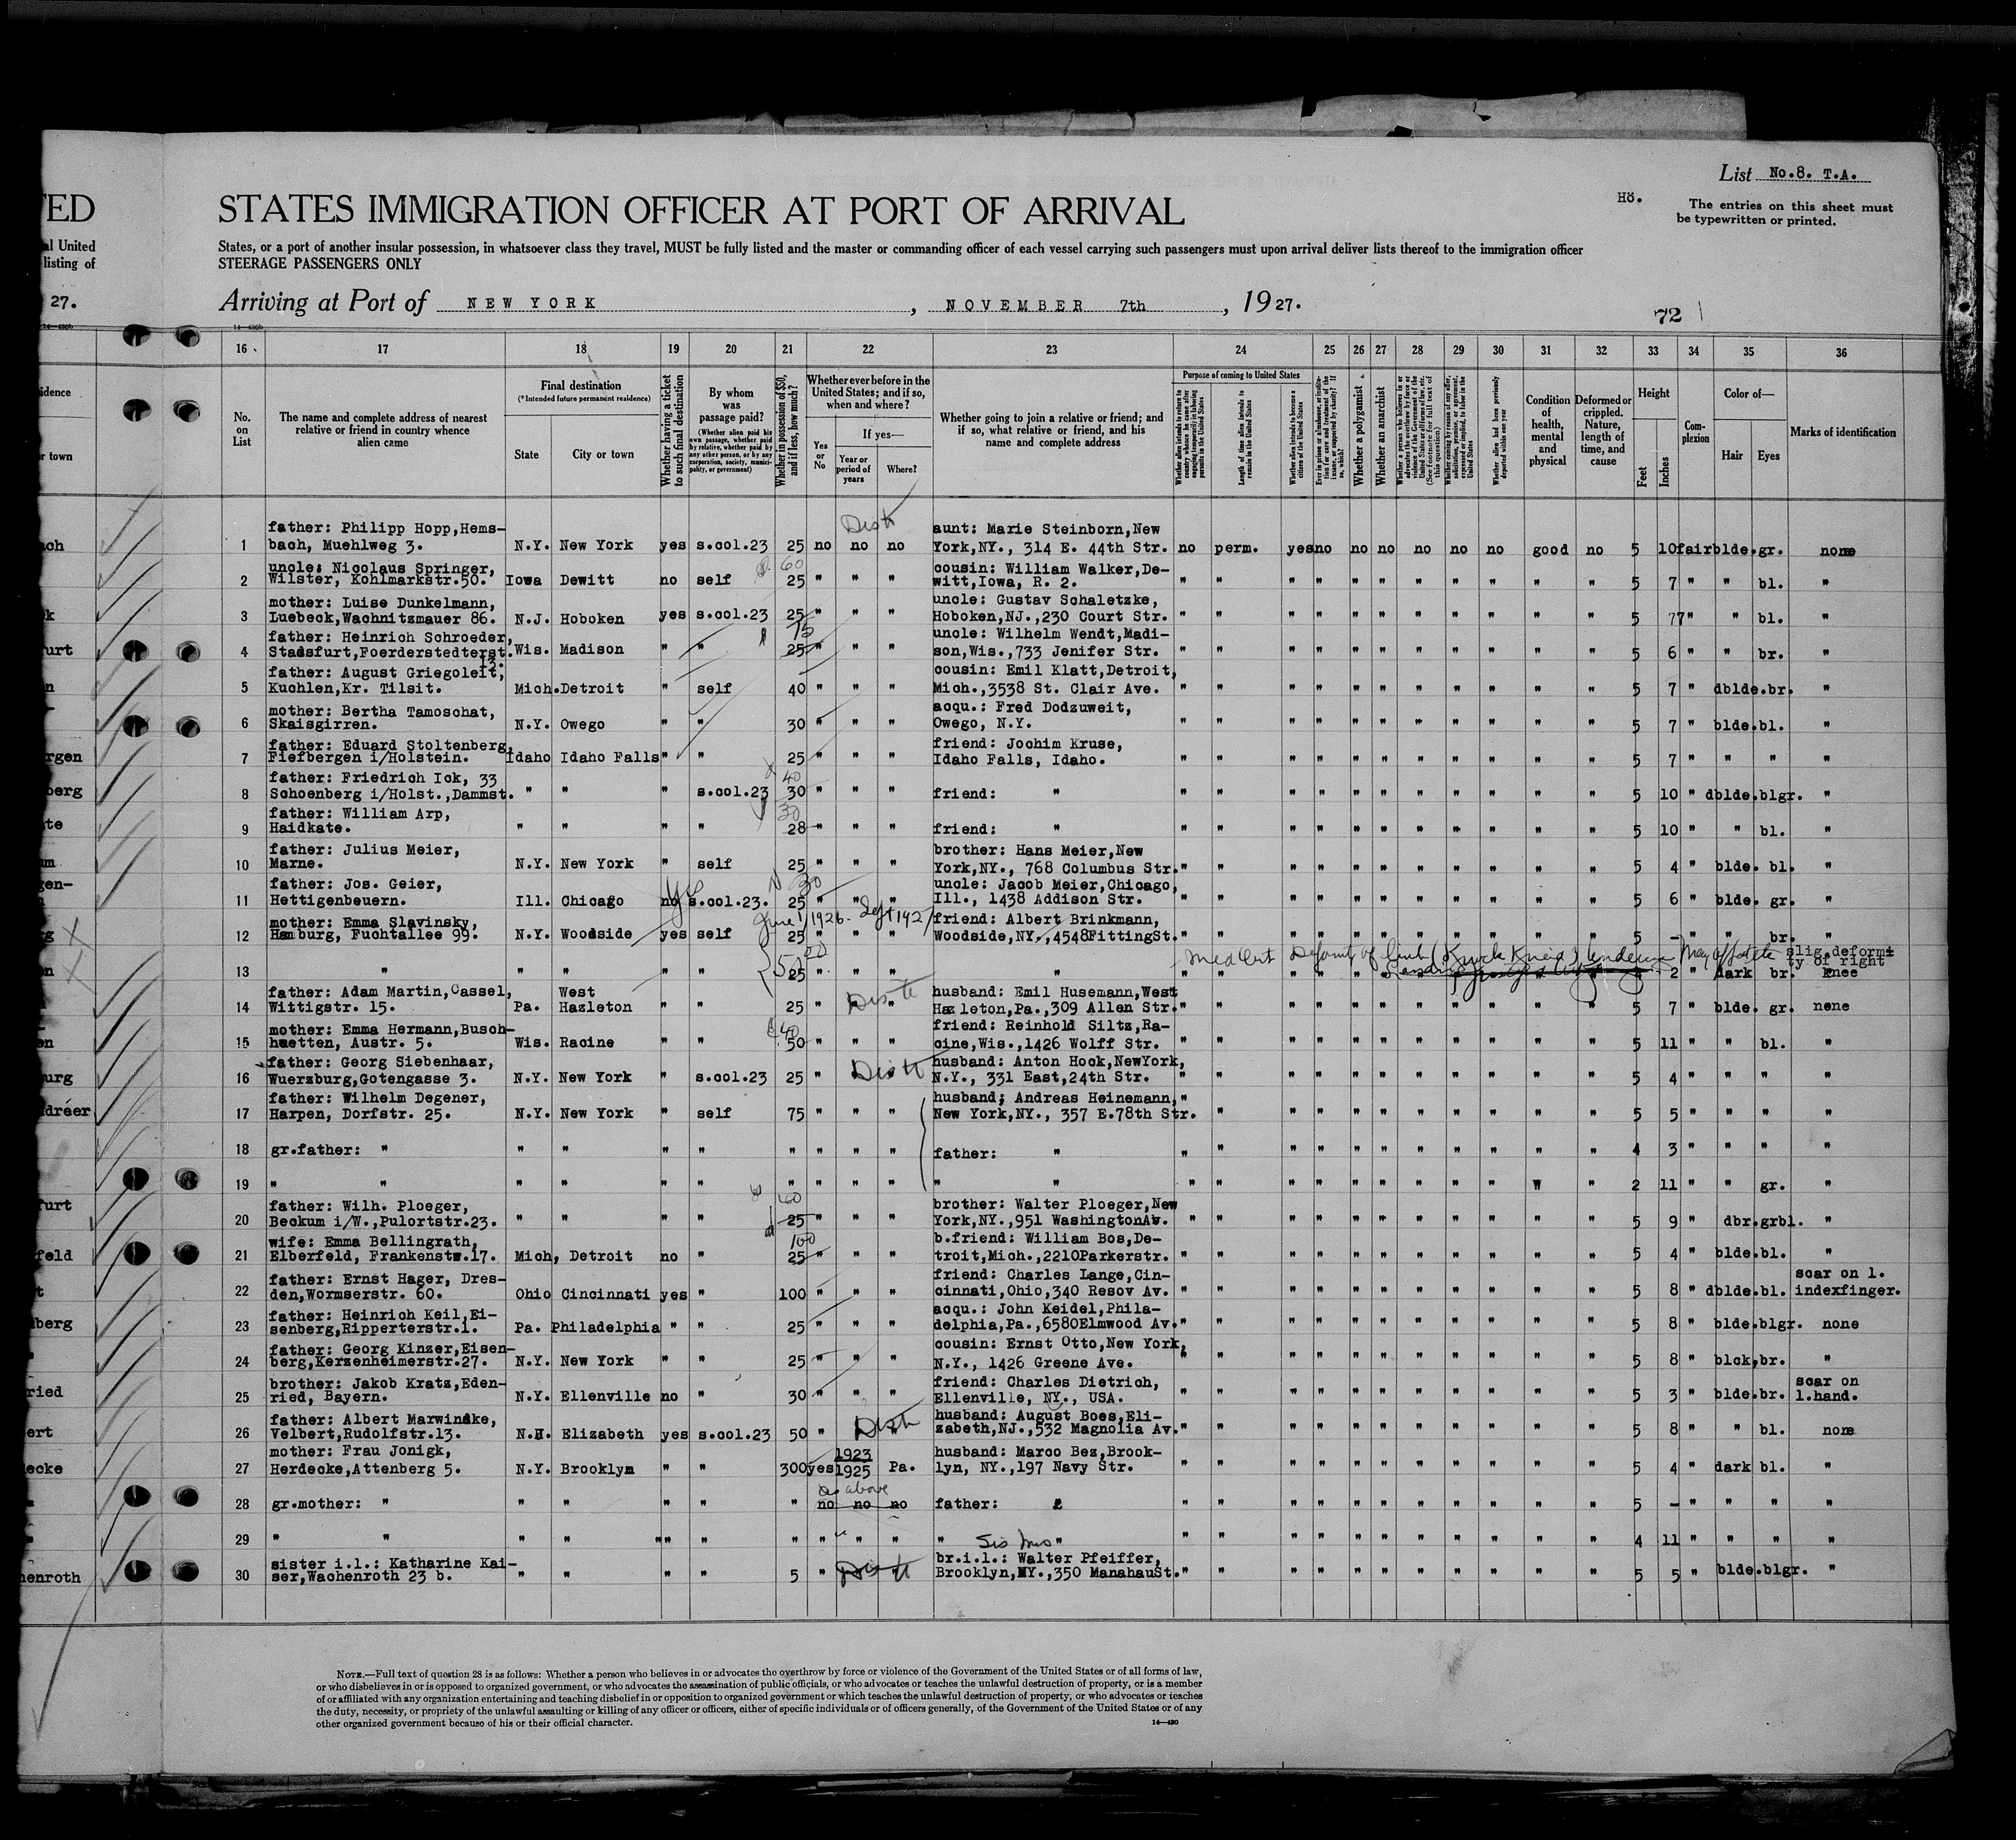 List No.8. T.A.
H8.
The entries on this sheet must
be typewritten or printed.
TED
STATES IMMIGRATION OFFICER AT PORT OF ARRIVAL
al United
listing of
States, or a port of another insular possession, in whatsoever class they travel, MUST be fully listed and the master or commanding officer of each vessel carrying such passengers must upon arrival deliver lists thereof to the immigration officer
STEERAGE PASSENGERS ONLY
27.
Arriving at Port of NEW YORK, NOVEMBER 7th, 1927.
72
16 17 18 19 20 21 22 23 24 25 26 27 28 29 30 31 32 33 34 35 36
No. on List
The name and complete address of nearest relative or friend in country whence alien came
Final destination
(*Intended future permanent residence)
State
City or town
Whether having a ticket to such final destination
By whom was passage paid?
(Whether alien paid his own passage, whether paid by relative, whether paid by any other person, or by any corporation, society, municipality, or government)
Whether in possession of $50, and if less, how much?
Whether ever before in the United States; and if so, when and where?
Yes or No
If yes—
Year or period of years
Where?
Whether going to join a relative or friend; and if so, what relative or friend, and his name and complete address
Purpose of coming to United States
Length of time alien intends to remain in the United States
Whether alien intends to become a citizen of the United States
Whether a polygamist
Whether an anarchist
Condition of health, mental and physical
Deformed or crippled. Nature, length of time, and cause
Height
Feet
Inches
Complexion
Color of—
Hair
Eyes
Marks of identification
1 father: Philipp Hopp,Hems-
bach, Muehlweg 3. N.Y. New York yes s.col.23 25 no no no aunt: Marie Steinborn,New
York,NY., 314 E. 44th Str. no perm. yes no no no no no no good no 5 10 fair blde. gr. none
2 uncle: Nicolaus Springer,
Wilster, Kohlmarkstr.50. Iowa Dewitt no self 60 25 " " " cousin: William Walker,De-
witt,Iowa, R. 2. " " " " " " " " " " " 5 7 " " bl. "
3 mother: Luise Dunkelmann,
Luebeck,Wachnitzmauer 86. N.J. Hoboken yes s.col.23 25 " " " uncle: Gustav Schaletzke,
Hoboken,NJ.,230 Court Str. " " " " " " " " " " " 5 77 " " bl. "
4 father: Heinrich Schroeder,
Stadsfurt,Foerderstedterst.
13. Wis. Madison " " 75 25 " " " uncle: Wilhelm Wendt,Madi-
son,Wis.,733 Jenifer Str. " " " " " " " " " " " 5 6 " " br. "
5 father: August Griegoleit,
Kuchlen,Kr. Tilsit. Mich. Detroit " self 40 " " " cousin: Emil Klatt,Detroit,
Mich.,3538 St. Clair Ave. " " " " " " " " " " " 5 7 " dblde. br. "
6 mother: Bertha Tamoschat,
Skaisgirren. N.Y. Owego " " 30 " " " acqu.: Fred Dodzuweit,
Owego, N.Y. " " " " " " " " " " " 5 7 " blde. bl. "
7 father: Eduard Stoltenberg,
Fiefbergen i/Holstein. Idaho Idaho Falls " " 25 " " " friend: Jochim Kruse,
Idaho Falls, Idaho. " " " " " " " " " " " 5 7 " " " "
8 father: Friedrich Ick, 33
Schoenberg i/Holst.,Dammst. " " " s.col.23 40 30 " " " friend: " " " " " " " " " " " " 5 10 " dblde. blgr. "
9 father: William Arp,
Haidkate. " " " " 30 28 " " " friend: " " " " " " " " " " " " 5 10 " " bl. "
10 father: Julius Meier,
Marne. N.Y. New York " self 25 " " " brother: Hans Meier,New
York,NY., 768 Columbus Str. " " " " " " " " " " " 5 4 " blde. bl. "
11 father: Jos. Geier,
Hettigenbeuern. Ill. Chicago no yes s.col.23. 30 25 " " " uncle: Jacob Meier,Chicago,
Ill., 1438 Addison Str. " " " " " " " " " " " 5 6 " blde. gr. "
12 mother: Emma Slavinsky,
Hamburg, Fuchtallee 99. N.Y. Woodside yes self 25 June 1/1926. Sept 1927 friend: Albert Brinkmann,
Woodside,NY.,4548FittingSt. " " " " " " " " " " " 5 - " " br. "
13 " " " " " 50 00 25 " " " " Med Cert Deformity of limb (Knock Kneed) 2 " dark br. slig.deformi
ty of right
knee
14 father: Adam Martin,Cassel,
Wittigstr. 15. Pa. West
Hazleton " " 25 " " " husband: Emil Husemann,West
Hazleton,Pa.,309 Allen Str. " " " " " " " " " " " 5 7 " blde. gr. none
15 mother: Emma Hermann,Busch-
huetten, Austr. 5. Wis. Racine " " 40 50 " " " friend: Reinhold Siltz,Ra-
cine,Wis.,1426 Wolff Str. " " " " " " " " " " " 5 11 " " bl. "
16 father: Georg Siebenhaar,
Wuerzburg,Gotengasse 3. N.Y. New York " s.col.23 25 " husband: Anton Hock,NewYork,
N.Y., 331 East,24th Str. " " " " " " " " " " " 5 4 " " " "
17 father: Wilhelm Degener,
Harpen, Dorfstr. 25. N.Y. New York " self 75 " " " husband; Andreas Heinemann,
New York,NY., 357 E.78th Str. " " " " " " " " " " " 5 5 " " " "
18 gr.father: " " " " " " " " " father: " " " " " " " " " " " " 4 3 " " " "
19 " " " " " " " " " " " " " " " " " " " " " " " " 2 11 " " gr. "
20 father: Wilh. Ploeger,
Beckum i/W.,Pulortstr.23. " " " " 60 25 " " " brother: Walter Ploeger,New
York,NY.,951 WashingtonAv. " " " " " " " " " " " 5 9 " dbr. grbl. "
21 wife: Emma Bellingrath,
Elberfeld, Frankenstr.17. Mich, Detroit no " 100 25 " " " b.friend: William Bos,De-
troit,Mich.,2210Parkerstr. " " " " " " " " " " " 5 4 " blde. bl. "
22 father: Ernst Hager, Dres-
den,Wormserstr. 60. Ohio Cincinnati yes " 100 " " " friend: Charles Lange,Cin-
cinnati,Ohio,340 Resov Av. " " " " " " " " " " " 5 8 " dblde. bl. scar on l.
indexfinger.
23 father: Heinrich Keil,Ei-
senberg,Ripperterstr.1. Pa. Philadelphia " " 25 " " " acqu.: John Keidel,Phila-
delphia,Pa.,6580Elmwood Av. " " " " " " " " " " " 5 8 " blde. blgr. none
24 father: Georg Kinzer,Eisen-
berg,Kerzenheimerstr.27. N.Y. New York " " 25 " " " cousin: Ernst Otto,New York,
N.Y., 1426 Greene Ave. " " " " " " " " " " " 5 8 " blck, br. "
25 brother: Jakob Kratz,Eden-
ried, Bayern. N.Y. Ellenville no " 30 " " " friend: Charles Dietrich,
Ellenville, NY., USA. " " " " " " " " " " " 5 3 " blde. br. scar on
l.hand.
26 father: Albert Marwindke,
Velbert,Rudolfstr.13. N.H. Elizabeth yes s.col.23 50 " " husband: August Boes,Eli-
zabeth,NJ.,532 Magnolia Av. " " " " " " " " " " " 5 8 " " bl. none
27 mother: Frau Jonigk,
Herdecke,Attenberg 5. N.Y. Brooklyn " " 300 yes 1923
1925 Pa. husband: Marco Bez,Brook-
lyn, NY.,197 Navy Str. " " " " " " " " " " " 5 4 " dark bl. "
28 gr.mother: " " " " " " as above no no no father: " " " " " " " " " " " 5 - " " " "
29 " " " " " " " " " " " " " " " " " " " " " " " 4 11 " " " "
30 sister i.l.: Katharine Kai-
ser,Wachenroth 23 b. " " " " 5 " br.i.l.: Walter Pfeiffer,
Brooklyn,NY.,350 ManahauSt. " " " " " " " " " " " 5 5 " blde. blgr. "
NOTE.—Full text of question 28 is as follows: Whether a person who believes in or advocates the overthrow by force or violence of the Government of the United States or of all forms of law,
or who disbelieves in or is opposed to organized government, or who advocates the assassination of public officials, or who advocates or teaches the unlawful destruction of property, or is a member
of or affiliated with any organization entertaining and teaching disbelief in or opposition to organized government or which teaches the unlawful destruction of property, or who advocates or teaches
the duty, necessity, or propriety of the unlawful assaulting or killing of any officer or officers, either of specific individuals or of officers generally, of the Government of the United States or of any
other organized government because of his or their official character.
14—430